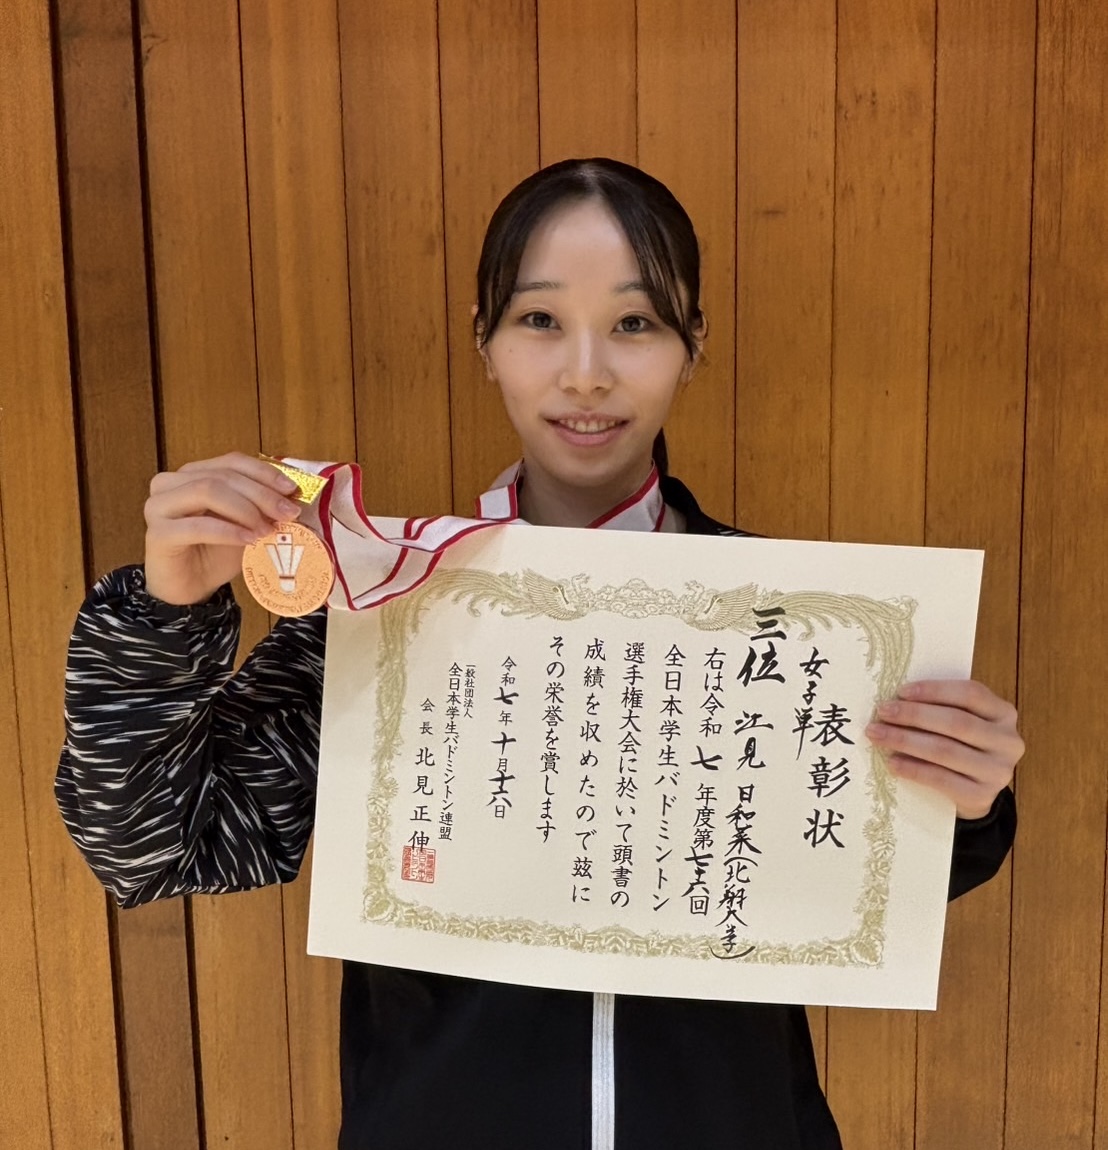 表彰状
女子単
三位 江見 日和菜(北翔大学)
右は令和七年度第七十六回
全日本学生バドミントン
選手権大会に於いて頭書の
成績を収めたので茲に
その栄誉を賞します
令和七年十月十八日
一般社団法人
全日本学生バドミントン連盟
会長 北見正伸